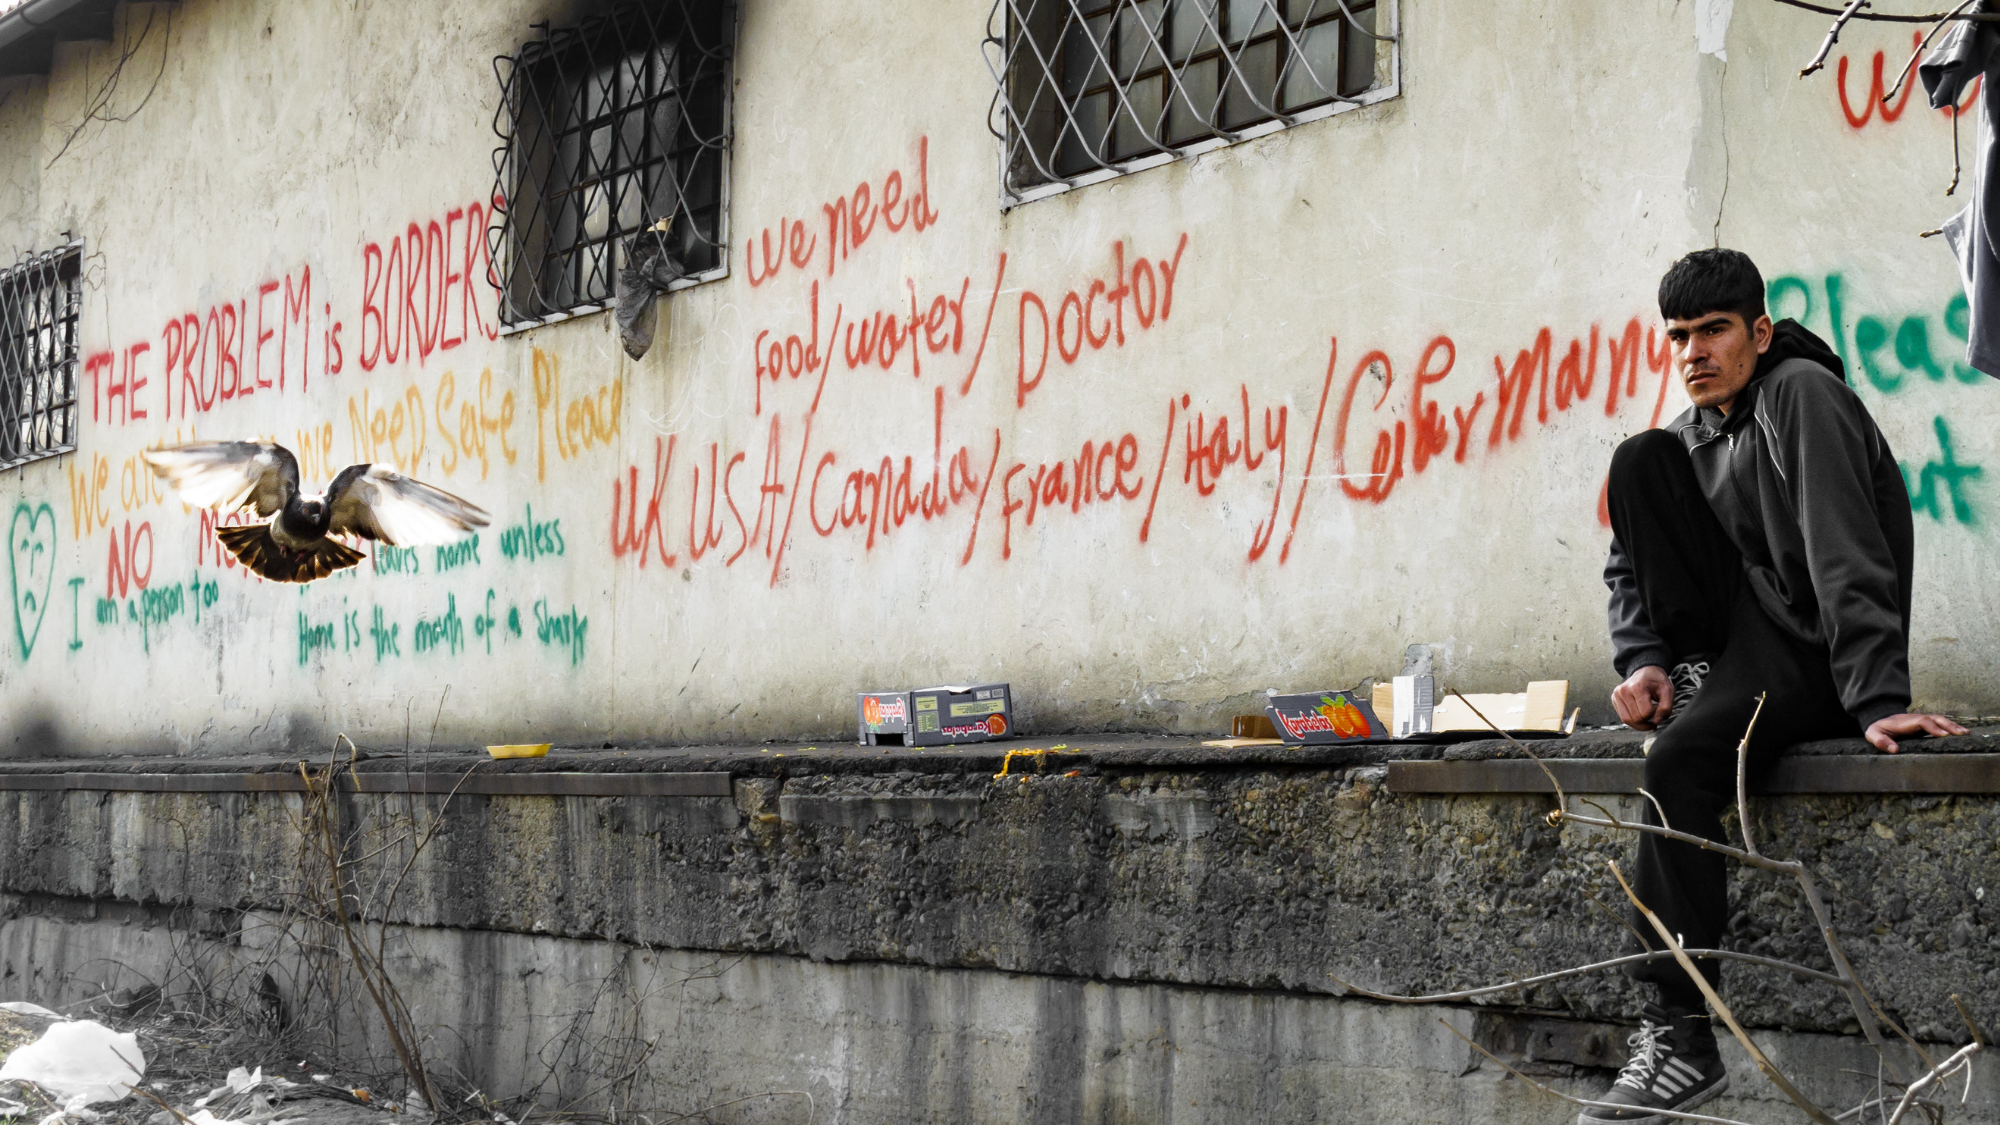 THE PROBLEM is BORDERS
we are we NeeD Safe Pleace
NO
I am a person too
leaves home unless
Home is the mouth of a Shark
we need
Food/water/Doctor
UK USA/Canada/France/italy/Germany
Karabelas
Karabelas
Karabelas
we
Pleas
ut